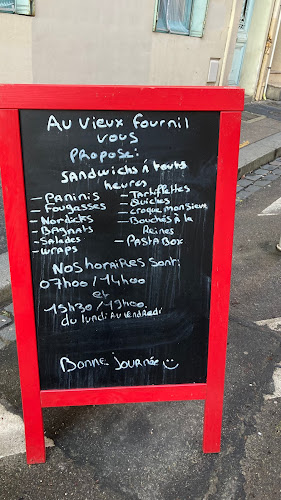 Au vieux fournil
vous
propose:
sandwichs à toute
heures
- Paninis
- Fougasses
- Nordicks
- Bagnats
- Salades
- wraps
- Tartiflettes
- Quiches
- croque monsieur
- Bouchés à la
Reines
- Pasta Box
Nos horaires sont:
07h00 / 14h00
et
15h30 / 19h00.
du lundi au vendredi
Bonne journée